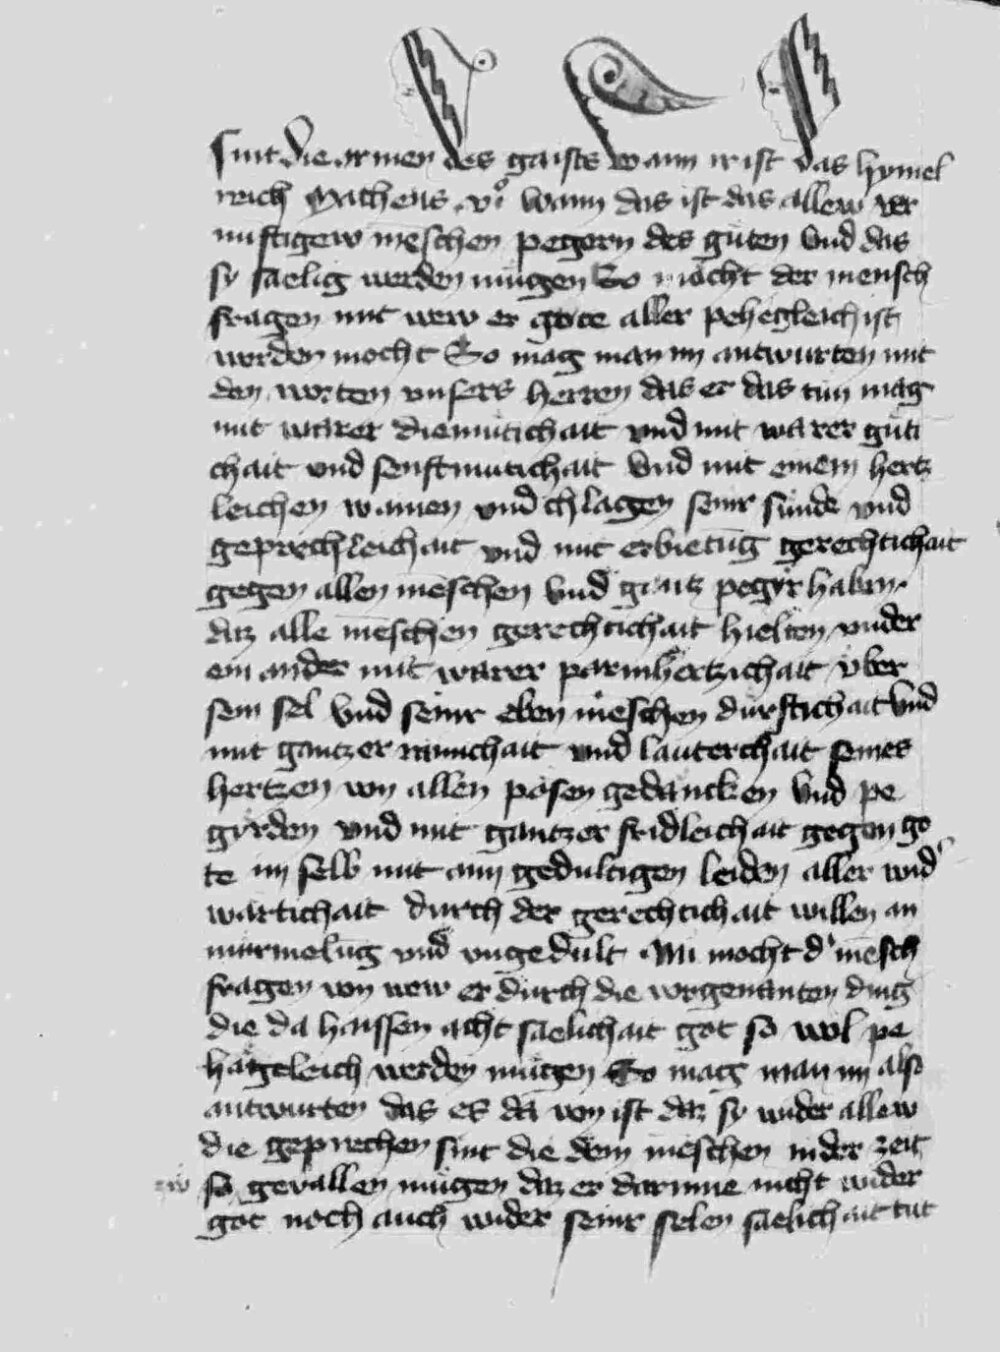 sint die armen des gaists wann ir ist das hymel
reich Matheus .vͦ. wann das ist das allew ver
nuftigew meschen pegern des guten vnd das
sy saelig werden mugen So mocht der mensch
fragen mit wew er gote aller pehegleichist
werden mocht So mag man im antwurten mit
den worten vnsers herren das er das tun mag
mit warer diemutichait vnd mit warer guti
chait vnd senftmutichait vnd mit einem hertz
leichen wainen vnd chlagen seinr sunde vnd
geprechleichait vnd mit erbietūg gerechtichait
gegen allen meschen vnd gantz pegir haben
daz alle meschen gerechtichait hielten vnder
ein ander mit warer parmhertzichait vber
sein sel vnd seinr eben meschen durftichait vnd
mit gantzer rainichait vnd lauterchait seines
hertzen von allen posen gedancken vnd pe
girden vnd mit gantzer fridleichait gegen go
te im selb mit aim gedultigen leiden aller wid'
wartichait durch der gerechtichait willen an
murmelūg vnd vngedult . Nu mocht d' mēsch
fragen von wew er durch die vorgenanten ding
die da haissen acht saelichait got so wol pe
hägeleich werden mugen So mag man im also
antwurten das es da von ist daz sy wider allew
die geprechen sint die dem meschen in der zeit
so gevallen mugen daz er darinne nicht wider
got noch auch wider seinr selen saelichait tut